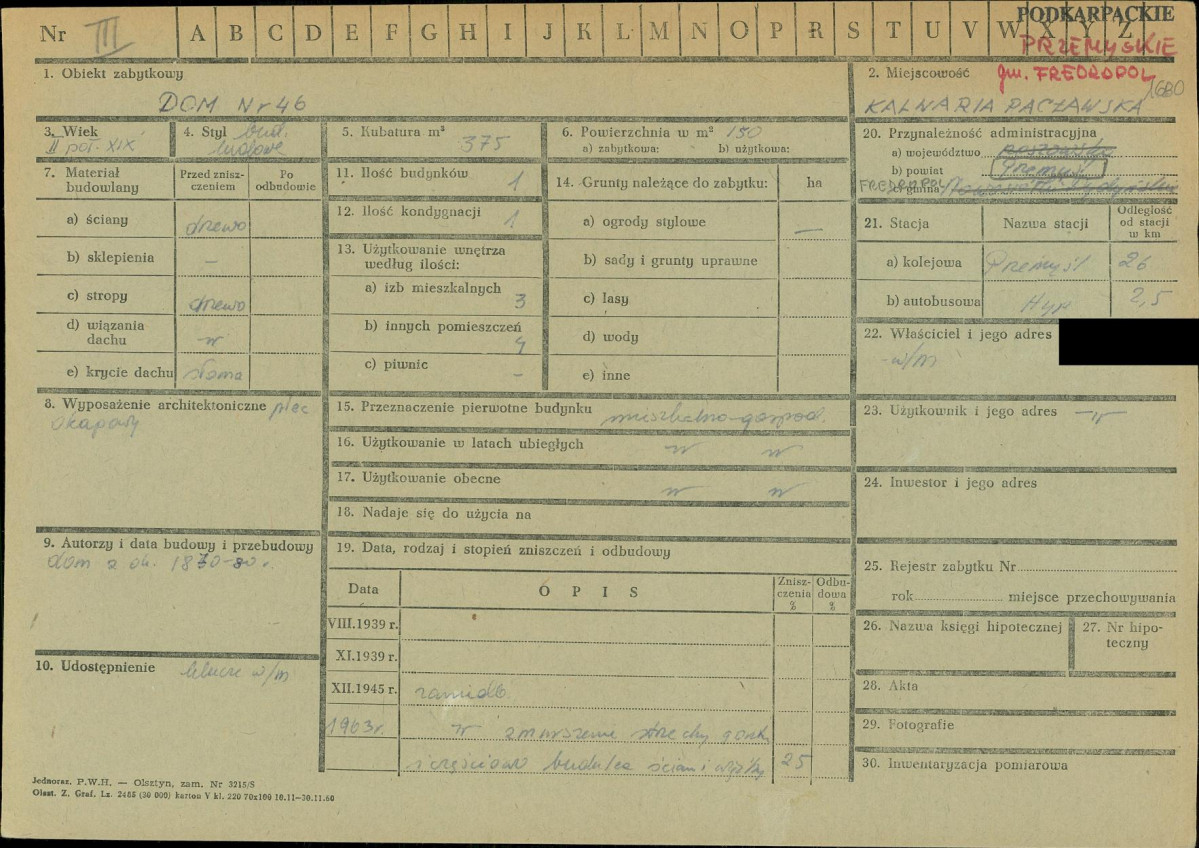 Nr III A B C D E F G H I J K L M N O P R S T U V W X Y Z
PODKARPACKIE
PRZEMYSKIE
gm. FREDROPOL
1680
1. Obiekt zabytkowy
DOM Nr 46
2. Miejscowość
KALWARIA PACŁAWSKA
3. Wiek
II poł. XIX
4. Styl bud.
ludowe
5. Kubatura m³
375
6. Powierzchnia w m² 150
a) zabytkowa: b) użytkowa:
7. Materiał budowlany
Przed zniszczeniem
Po odbudowie
a) ściany drewo
b) sklepienia –
c) stropy drewo
d) wiązania dachu -„-
e) krycie dachu słoma
8. Wyposażenie architektoniczne piec
okapowy
9. Autorzy i data budowy i przebudowy
dom z ok. 1870-80 r.
10. Udostępnienie
klucze w/m
11. Ilość budynków 1
12. Ilość kondygnacji 1
13. Użytkowanie wnętrza
według ilości:
a) izb mieszkalnych 3
b) innych pomieszczeń 4
c) piwnic –
14. Grunty należące do zabytku: ha
a) ogrody stylowe –
b) sady i grunty uprawne
c) lasy
d) wody
e) inne
15. Przeznaczenie pierwotne budynku mieszkalno-gospod.
16. Użytkowanie w latach ubiegłych „ „
17. Użytkowanie obecne „ „
18. Nadaje się do użycia na
19. Data, rodzaj i stopień zniszczeń i odbudowy
Data OPIS Zniszczenia % Odbudowa %
VIII.1939 r.
XI.1939 r.
XII.1945 r.
1963 r. „ zmurszenie strzechy
i częściowo budulca ścian i 25
20. Przynależność administracyjna
a) województwo rzeszowskie
b) powiat Przemyśl
c) gmina FREDROPOL
21. Stacja Nazwa stacji Odległość od stacji w km
a) kolejowa Przemyśl 26
b) autobusowa 2,5
22. Właściciel i jego adres
w/m
23. Użytkownik i jego adres -„-
24. Inwestor i jego adres
25. Rejestr zabytku Nr
rok miejsce przechowywania
26. Nazwa księgi hipotecznej
27. Nr hipoteczny
28. Akta
29. Fotografie
30. Inwentaryzacja pomiarowa
Jednoraz. P.W.H. — Olsztyn, zam. Nr 3215/S
Olszt. Z. Graf. Lz. 2485 (30 000) karton V kl. 220 70x100 10.11—30.11.60